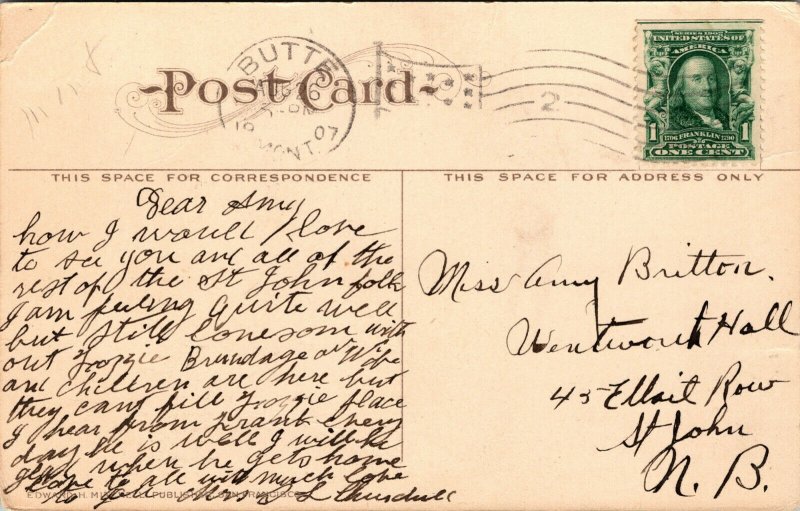 Post Card
BUTTE
AUG 6
PM
1907
MONT.
2
SERIES 1902
UNITED STATES OF
AMERICA
1 1
1706 FRANKLIN 1790
POSTAGE
ONE CENT
THIS SPACE FOR CORRESPONDENCE
THIS SPACE FOR ADDRESS ONLY
Dear Amy
how I would love
to see you and all of the
rest of the St John folk
I am feeling quite well
but still lonesom with
out Brundage and Wife
and children are here but
they cant fill place
I hear from Frank every
day he is well I will be
glad when he gets home
Love to all with much love
to Mrs
EDWARD H. MITCHELL, PUBLISHER, SAN FRANCISCO
Miss Amy Britton.
Wentworth Hall
45 Elloit Row
St John
N. B.